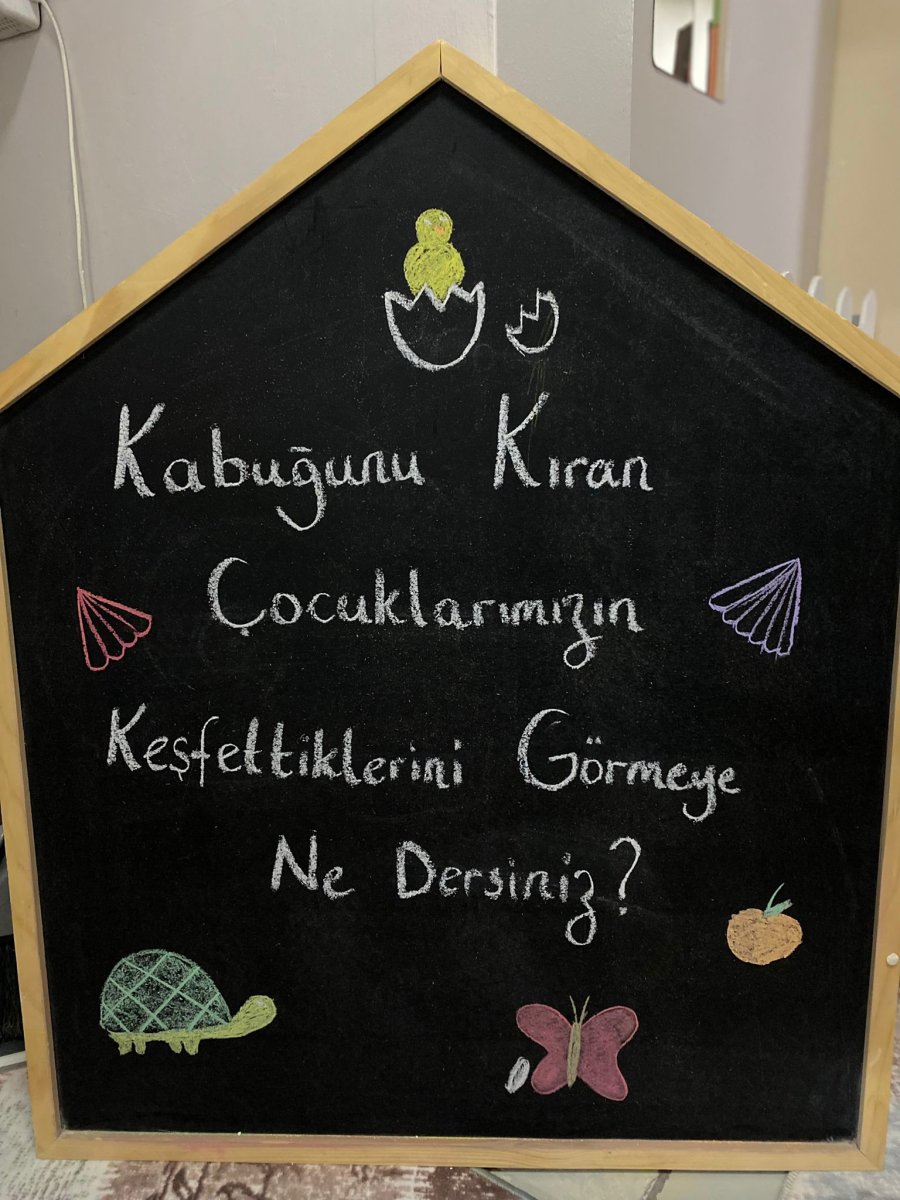 Kabuğunu Kıran
Çocuklarımızın
Keşfettiklerini Görmeye
Ne Dersiniz?